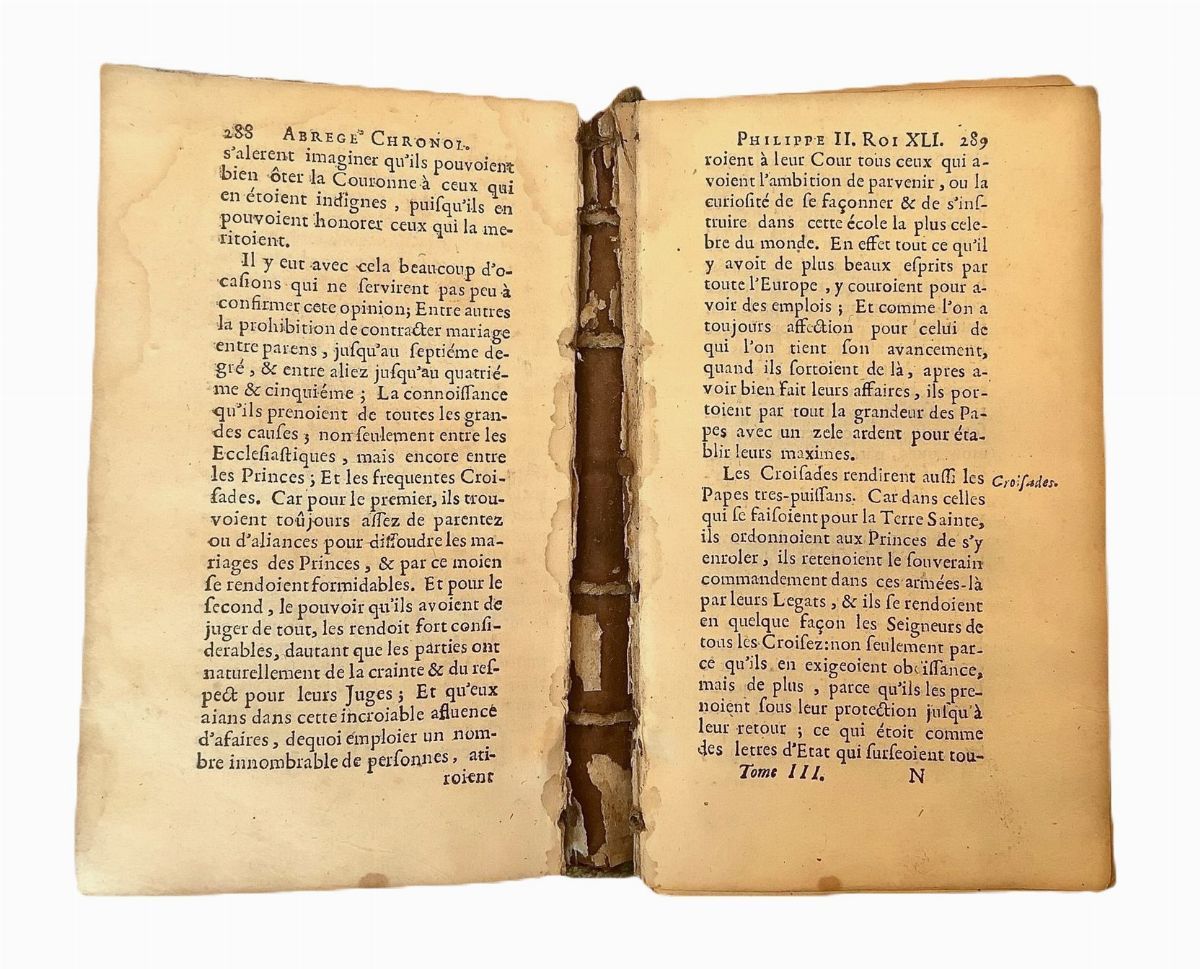 288 ABREGE' CHRONOL.
s'alerent imaginer qu'ils pouvoient
bien ôter la Couronne à ceux qui
en étoient indignes, puiſqu'ils en
pouvoient honorer ceux qui la me-
ritoient.
Il y eut avec cela beaucoup d'o-
caſions qui ne ſervirent pas peu à
confirmer cete opinion; Entre autres
la prohibition de contracter mariage
entre parens, juſqu'au ſeptiéme de-
gré, & entre aliez juſqu'au quatrié-
me & cinquiéme; La connoiſſance
qu'ils prenoient de toutes les gran-
des cauſes; non ſeulement entre les
Eccleſiaſtiques, mais encore entre
les Princes; Et les frequentes Croi-
ſades. Car pour le premier, ils trou-
voient toûjours aſſez de parentez
ou d'aliances pour diſſoudre les ma-
riages des Princes, & par ce moien
ſe rendoient formidables. Et pour le
ſecond, le pouvoir qu'ils avoient de
juger de tout, les rendoit fort conſi-
derables, dautant que les parties ont
naturellement de la crainte & du reſ-
pect pour leurs Juges; Et qu'eux
aians dans cette incroiable afluence
d'afaires, dequoi emploier un nom-
bre innombrable de personnes, ati-
roient
PHILIPPE II. ROI XLI. 289
roient à leur Cour tous ceux qui a-
voient l'ambition de parvenir, ou la
curioſité de ſe façonner & de s'inſ-
truire dans cette école la plus cele-
bre du monde. En effet tout ce qu'il
y avoit de plus beaux eſprits par
toute l'Europe, y couroient pour a-
voir des emplois; Et comme l'on a
toujours affection pour celui de
qui l'on tient ſon avancement,
quand ils ſortoient de là, apres a-
voir bien fait leurs affaires, ils por-
toient par tout la grandeur des Pa-
pes avec un zele ardent pour éta-
blir leurs maximes.
Les Croiſades rendirent auſſi les
Croiſades.
Papes tres-puiſſans. Car dans celles
qui ſe faiſoient pour la Terre Sainte,
ils ordonnoient aux Princes de s'y
enroler, ils retenoient le ſouverain
commandement dans ces armées-là
par leurs Legats, & ils ſe rendoient
en quelque façon les Seigneurs de
tous les Croiſez: non ſeulement par-
ce qu'ils en exigeoient obéiſſance,
mais de plus, parce qu'ils les pre-
noient ſous leur protection juſqu'à
leur retour; ce qui étoit comme
des letres d'Etat qui surſeoient tou-
Tome III. N